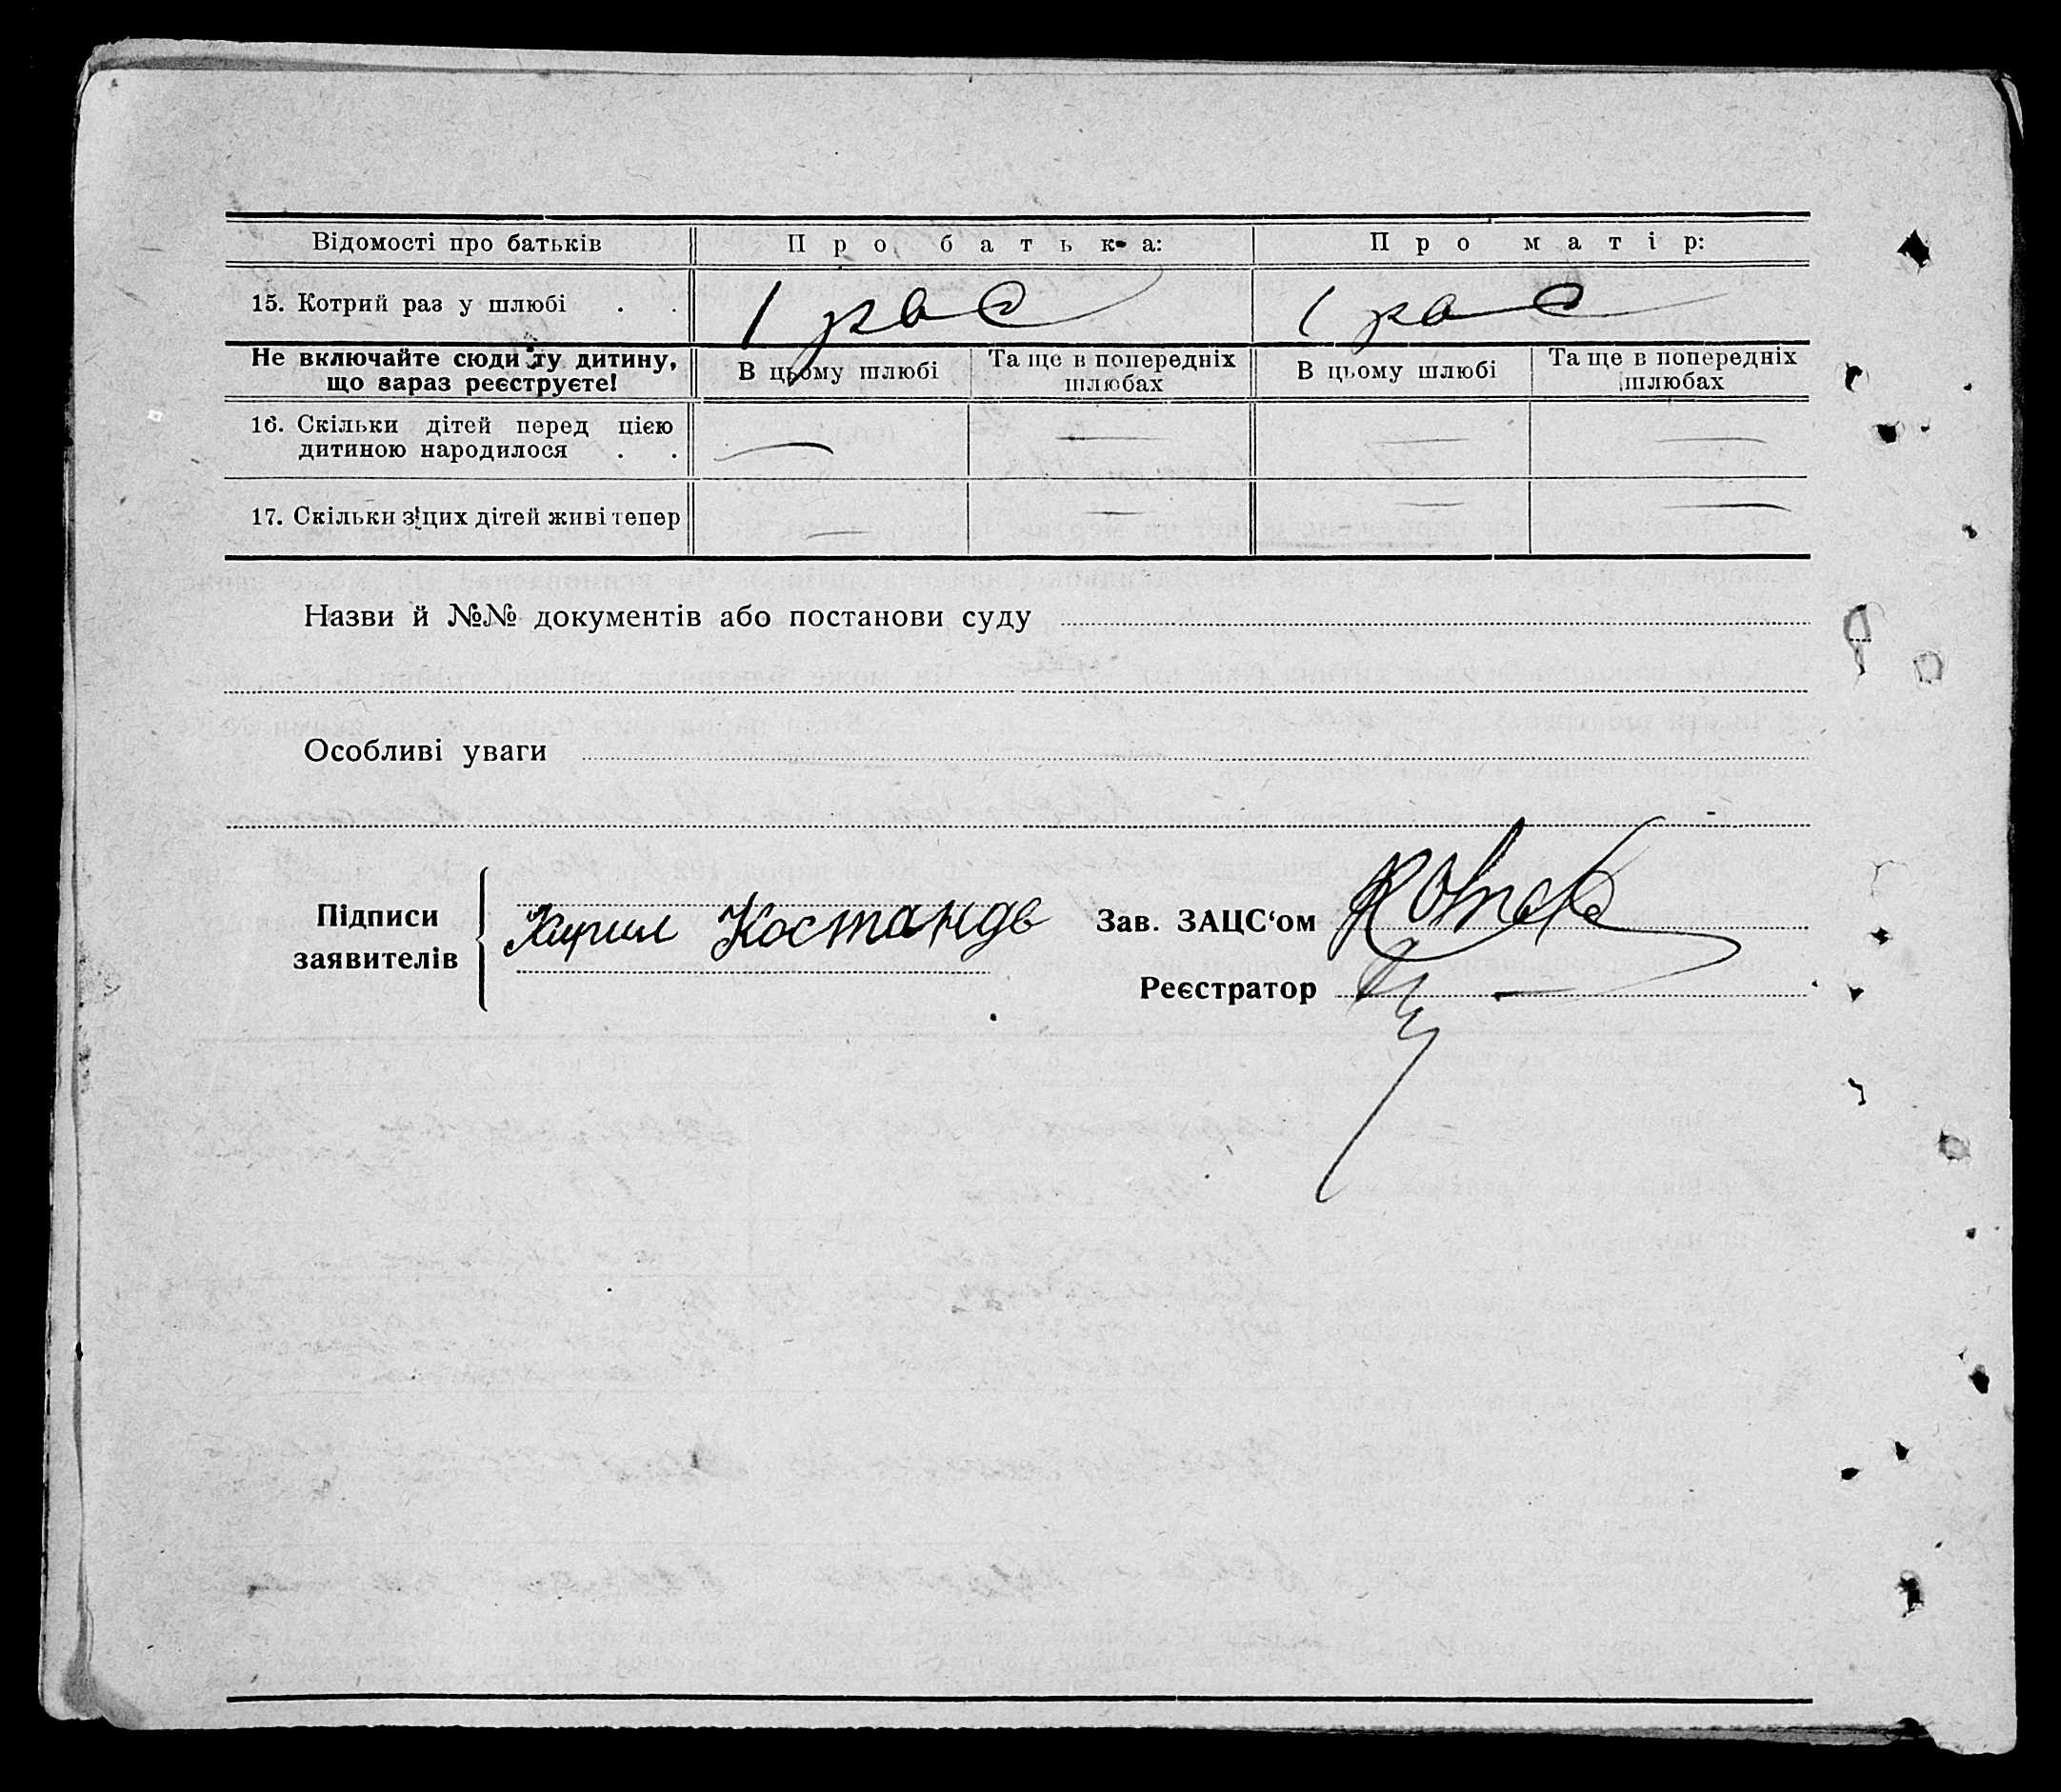 Відомості про батьків Про батька: Про матір:
15. Котрий раз у шлюбі . . 1 раз 1 раз
Не включайте сюди ту дитину, що зараз реєструєте!
В цьому шлюбі Та ще в попередніх шлюбах В цьому шлюбі Та ще в попередніх шлюбах
16. Скільки дітей перед цією
дитиною народилося . . — — — —
17. Скільки з цих дітей живі тепер — — — —
Назви й №№ документів або постанови суду
Особливі уваги
Підписи
заявителів
Кирил Костандо
Зав. ЗАЦС‘ом
Реєстратор